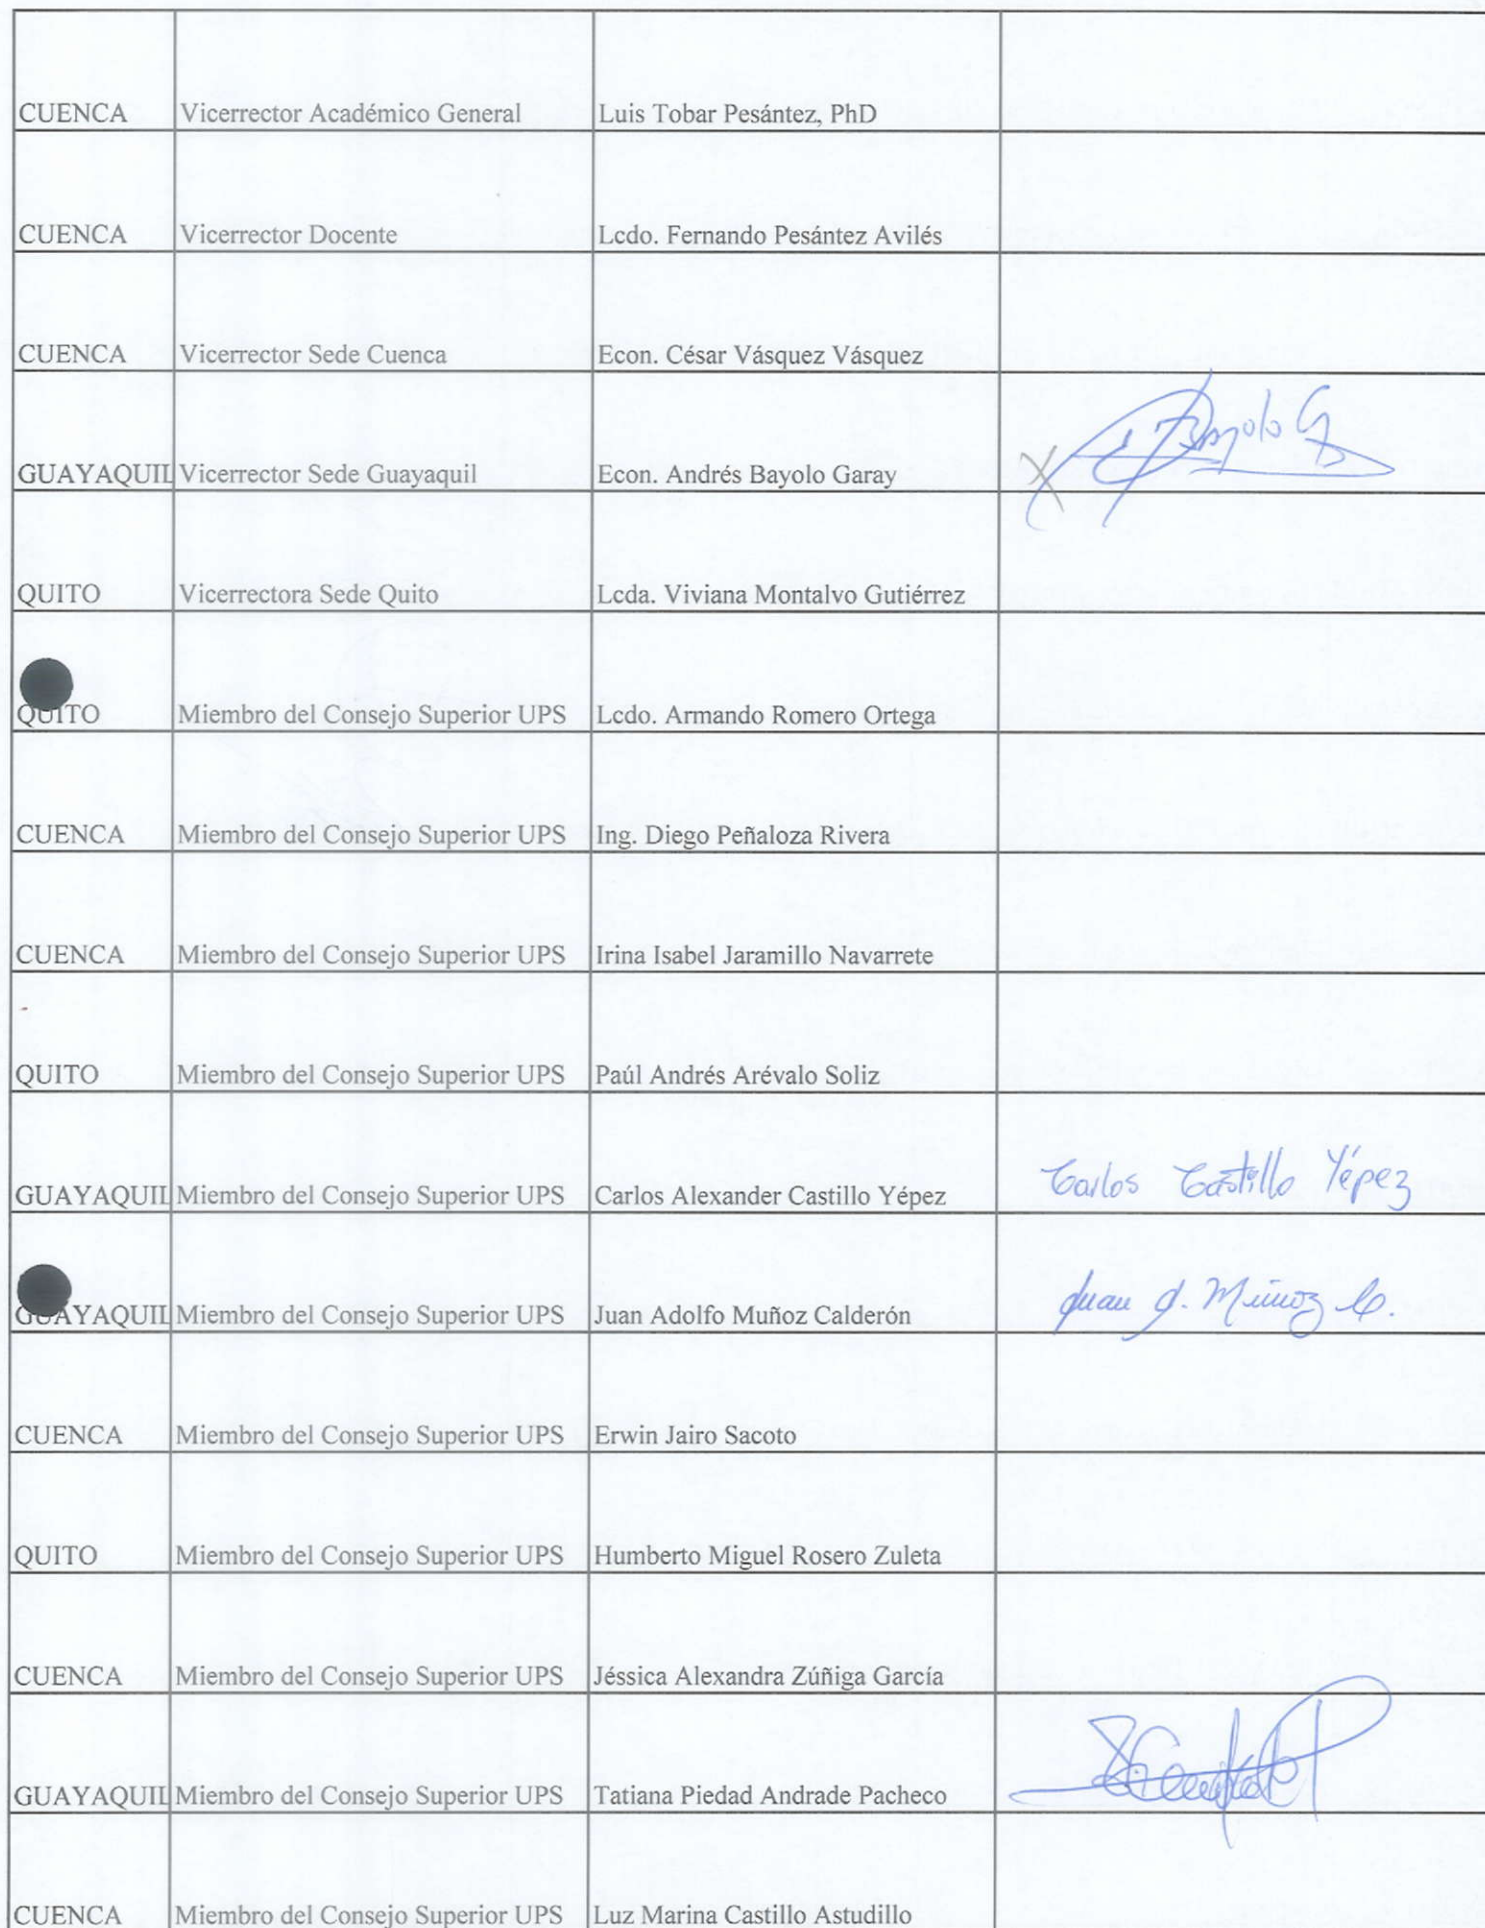 CUENCA Vicerrector Académico General Luis Tobar Pesántez, PhD
CUENCA Vicerrector Docente Lcdo. Fernando Pesántez Avilés
CUENCA Vicerrector Sede Cuenca Econ. César Vásquez Vásquez
GUAYAQUIL Vicerrector Sede Guayaquil Econ. Andrés Bayolo Garay X Bayolo G
QUITO Vicerrectora Sede Quito Lcda. Viviana Montalvo Gutiérrez
QUITO Miembro del Consejo Superior UPS Lcdo. Armando Romero Ortega
CUENCA Miembro del Consejo Superior UPS Ing. Diego Peñaloza Rivera
CUENCA Miembro del Consejo Superior UPS Irina Isabel Jaramillo Navarrete
QUITO Miembro del Consejo Superior UPS Paúl Andrés Arévalo Soliz
GUAYAQUIL Miembro del Consejo Superior UPS Carlos Alexander Castillo Yépez Carlos Castillo Yépez
GUAYAQUIL Miembro del Consejo Superior UPS Juan Adolfo Muñoz Calderón Juan A. Muñoz C.
CUENCA Miembro del Consejo Superior UPS Erwin Jairo Sacoto
QUITO Miembro del Consejo Superior UPS Humberto Miguel Rosero Zuleta
CUENCA Miembro del Consejo Superior UPS Jéssica Alexandra Zúñiga García
GUAYAQUIL Miembro del Consejo Superior UPS Tatiana Piedad Andrade Pacheco
CUENCA Miembro del Consejo Superior UPS Luz Marina Castillo Astudillo